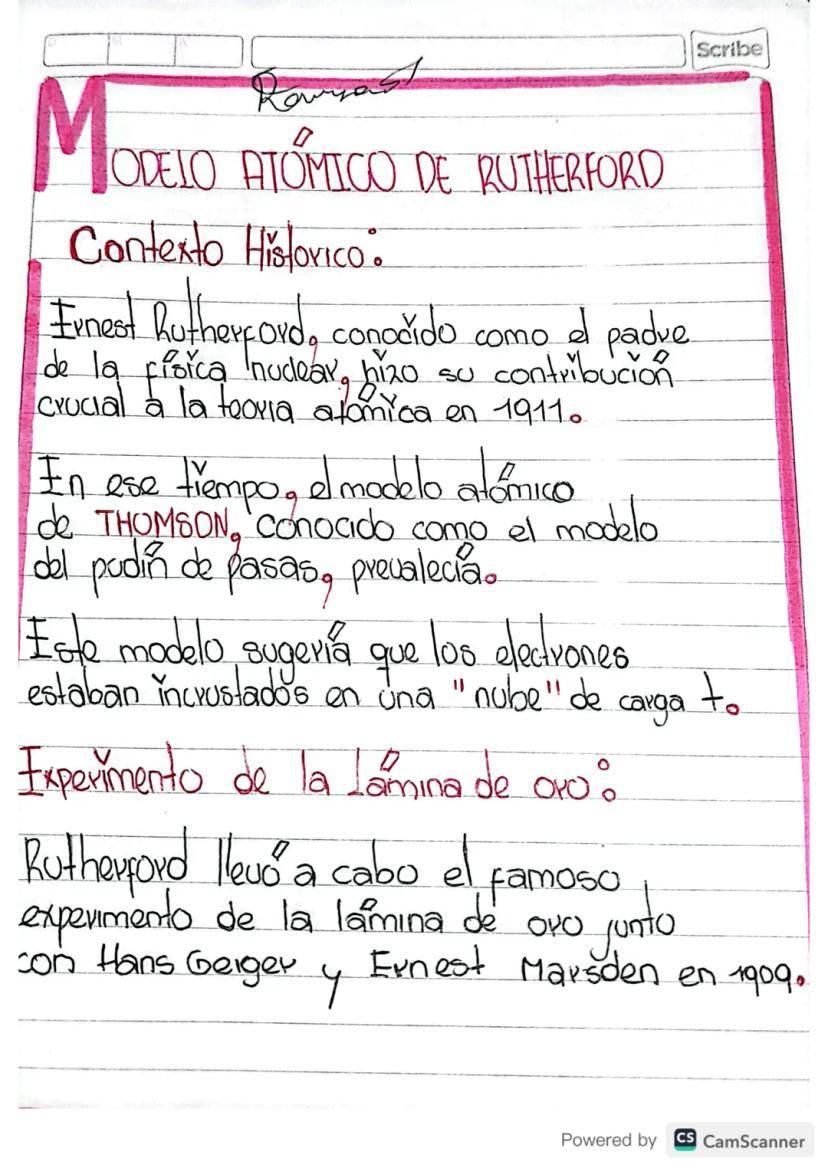 Scribe
MODELO ATÓMICO DE RUTHERFORD
Contexto Histórico:
Ernest Rutherford, conocido como el padre
de la física nuclear, hizo su contribución
crucial a la teoria atómica en 1911.
En ese tiempo, el modelo atómico
de THOMSON, conocido como el modelo
del pudín de pasas, prevalecía.
Este modelo sugería que los electrones
estaban incrustados en una "nube" de carga +.
Experimento de la Lámina de oro:
Rutherford llevó a cabo el famoso
experimento de la lámina de oro junto
con Hans Geiger y Ernest Marsden en 1909.
Powered by CS CamScanner